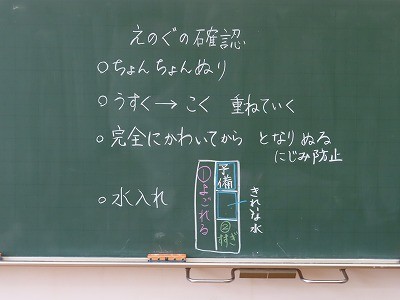 えのぐの確認
○ちょんちょんぬり
○うすく→こく 重ねていく
○完全にかわいてから となりぬる
にじみ防止
○水入れ
①よごれる
予備
②すすぎ
きれいな水